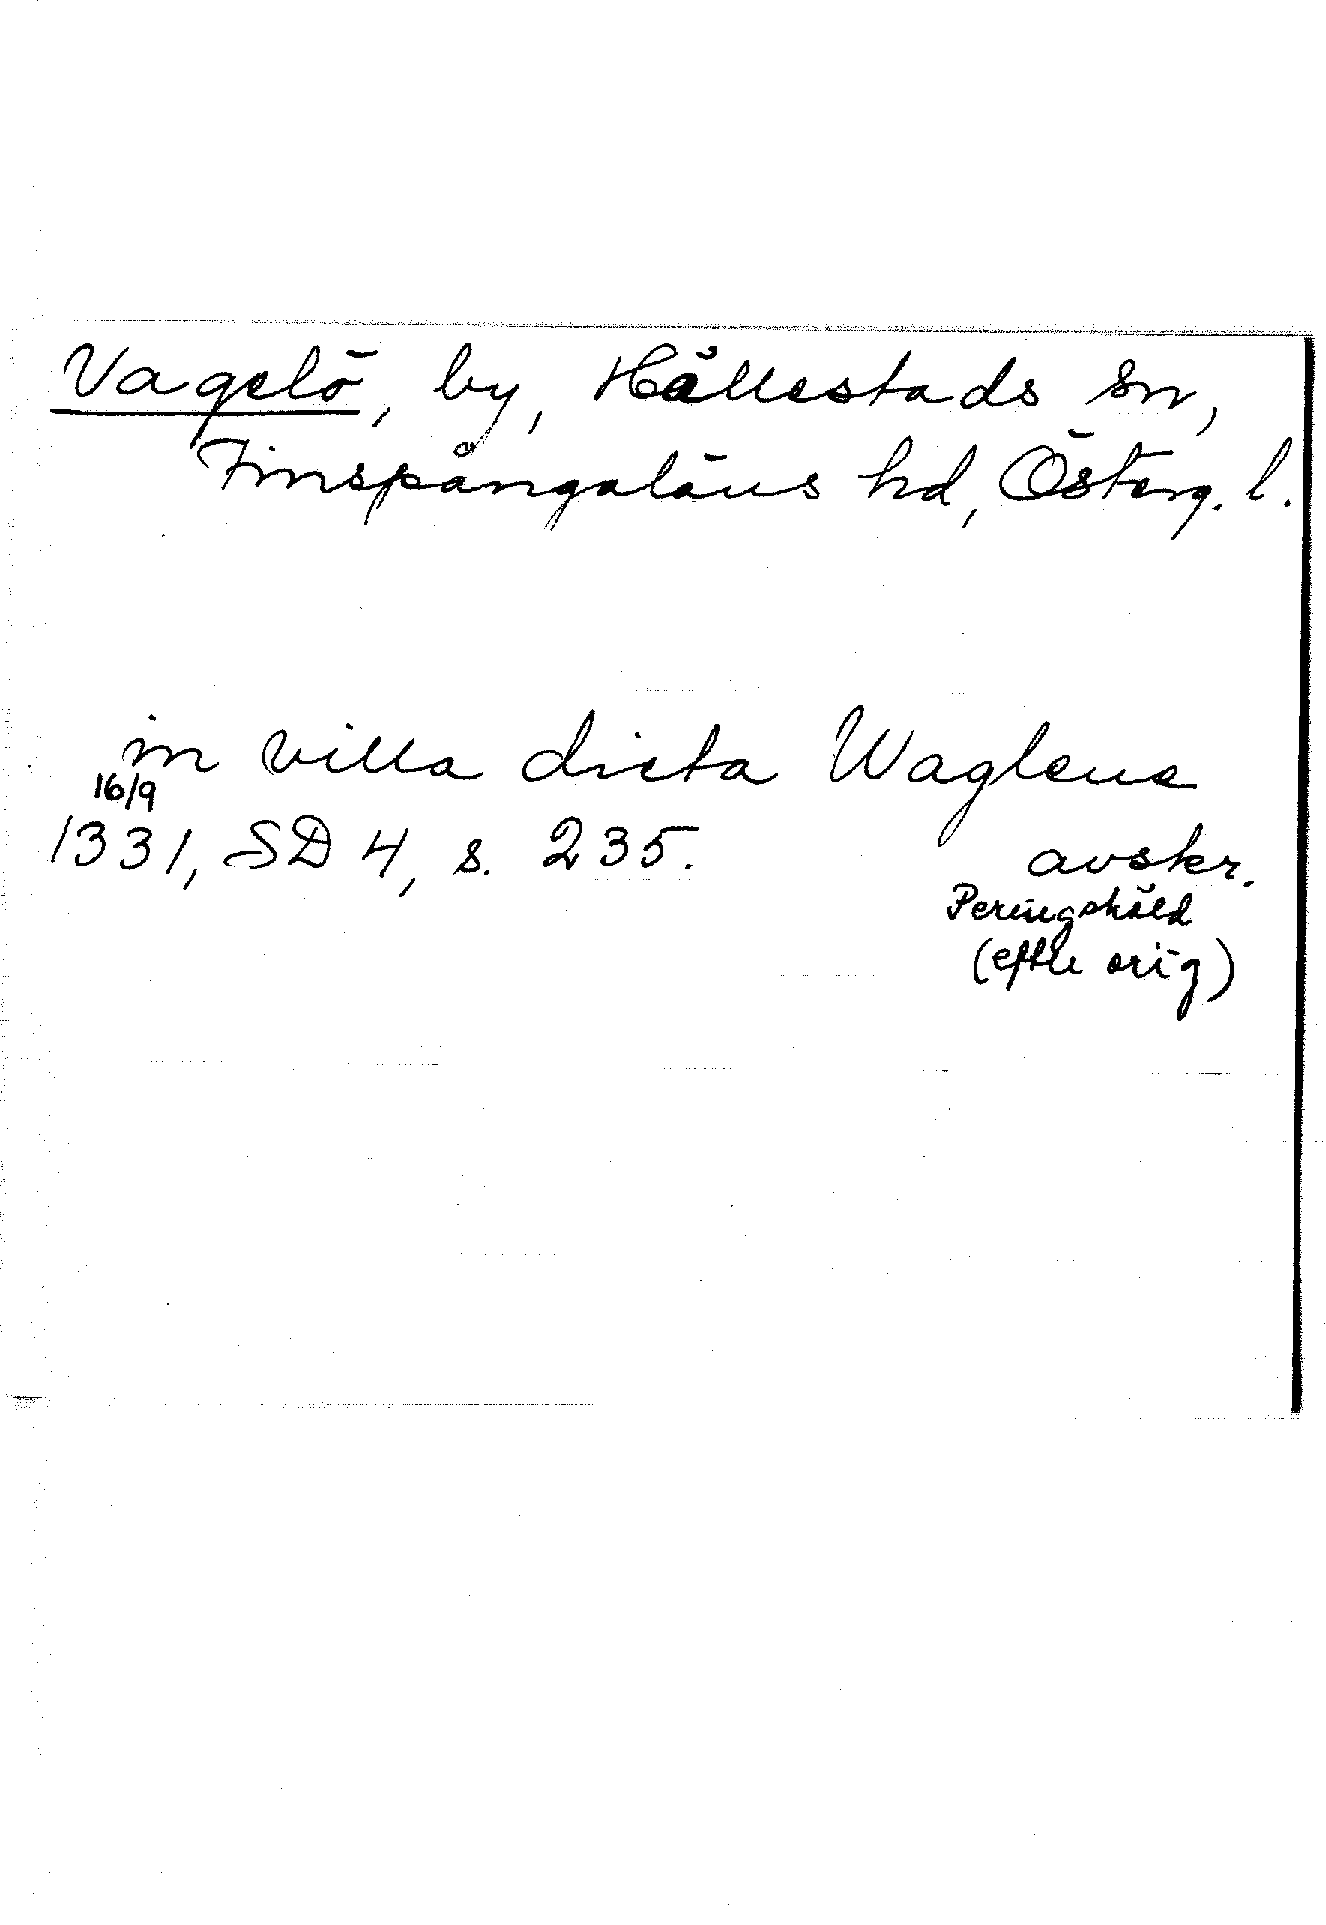 Vagelö, by, Hällestads sn,
Finspångaläns hd, Österg. l.
in villa dicta Waglene
16/9
1331, SD 4, s. 235. avskr.
Peringskiöld
(efter orig)